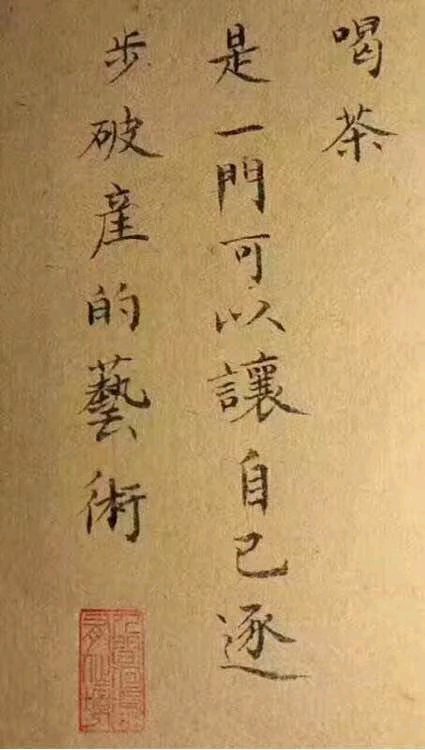 喝茶
是一門可以讓自己逐
步破產的藝術